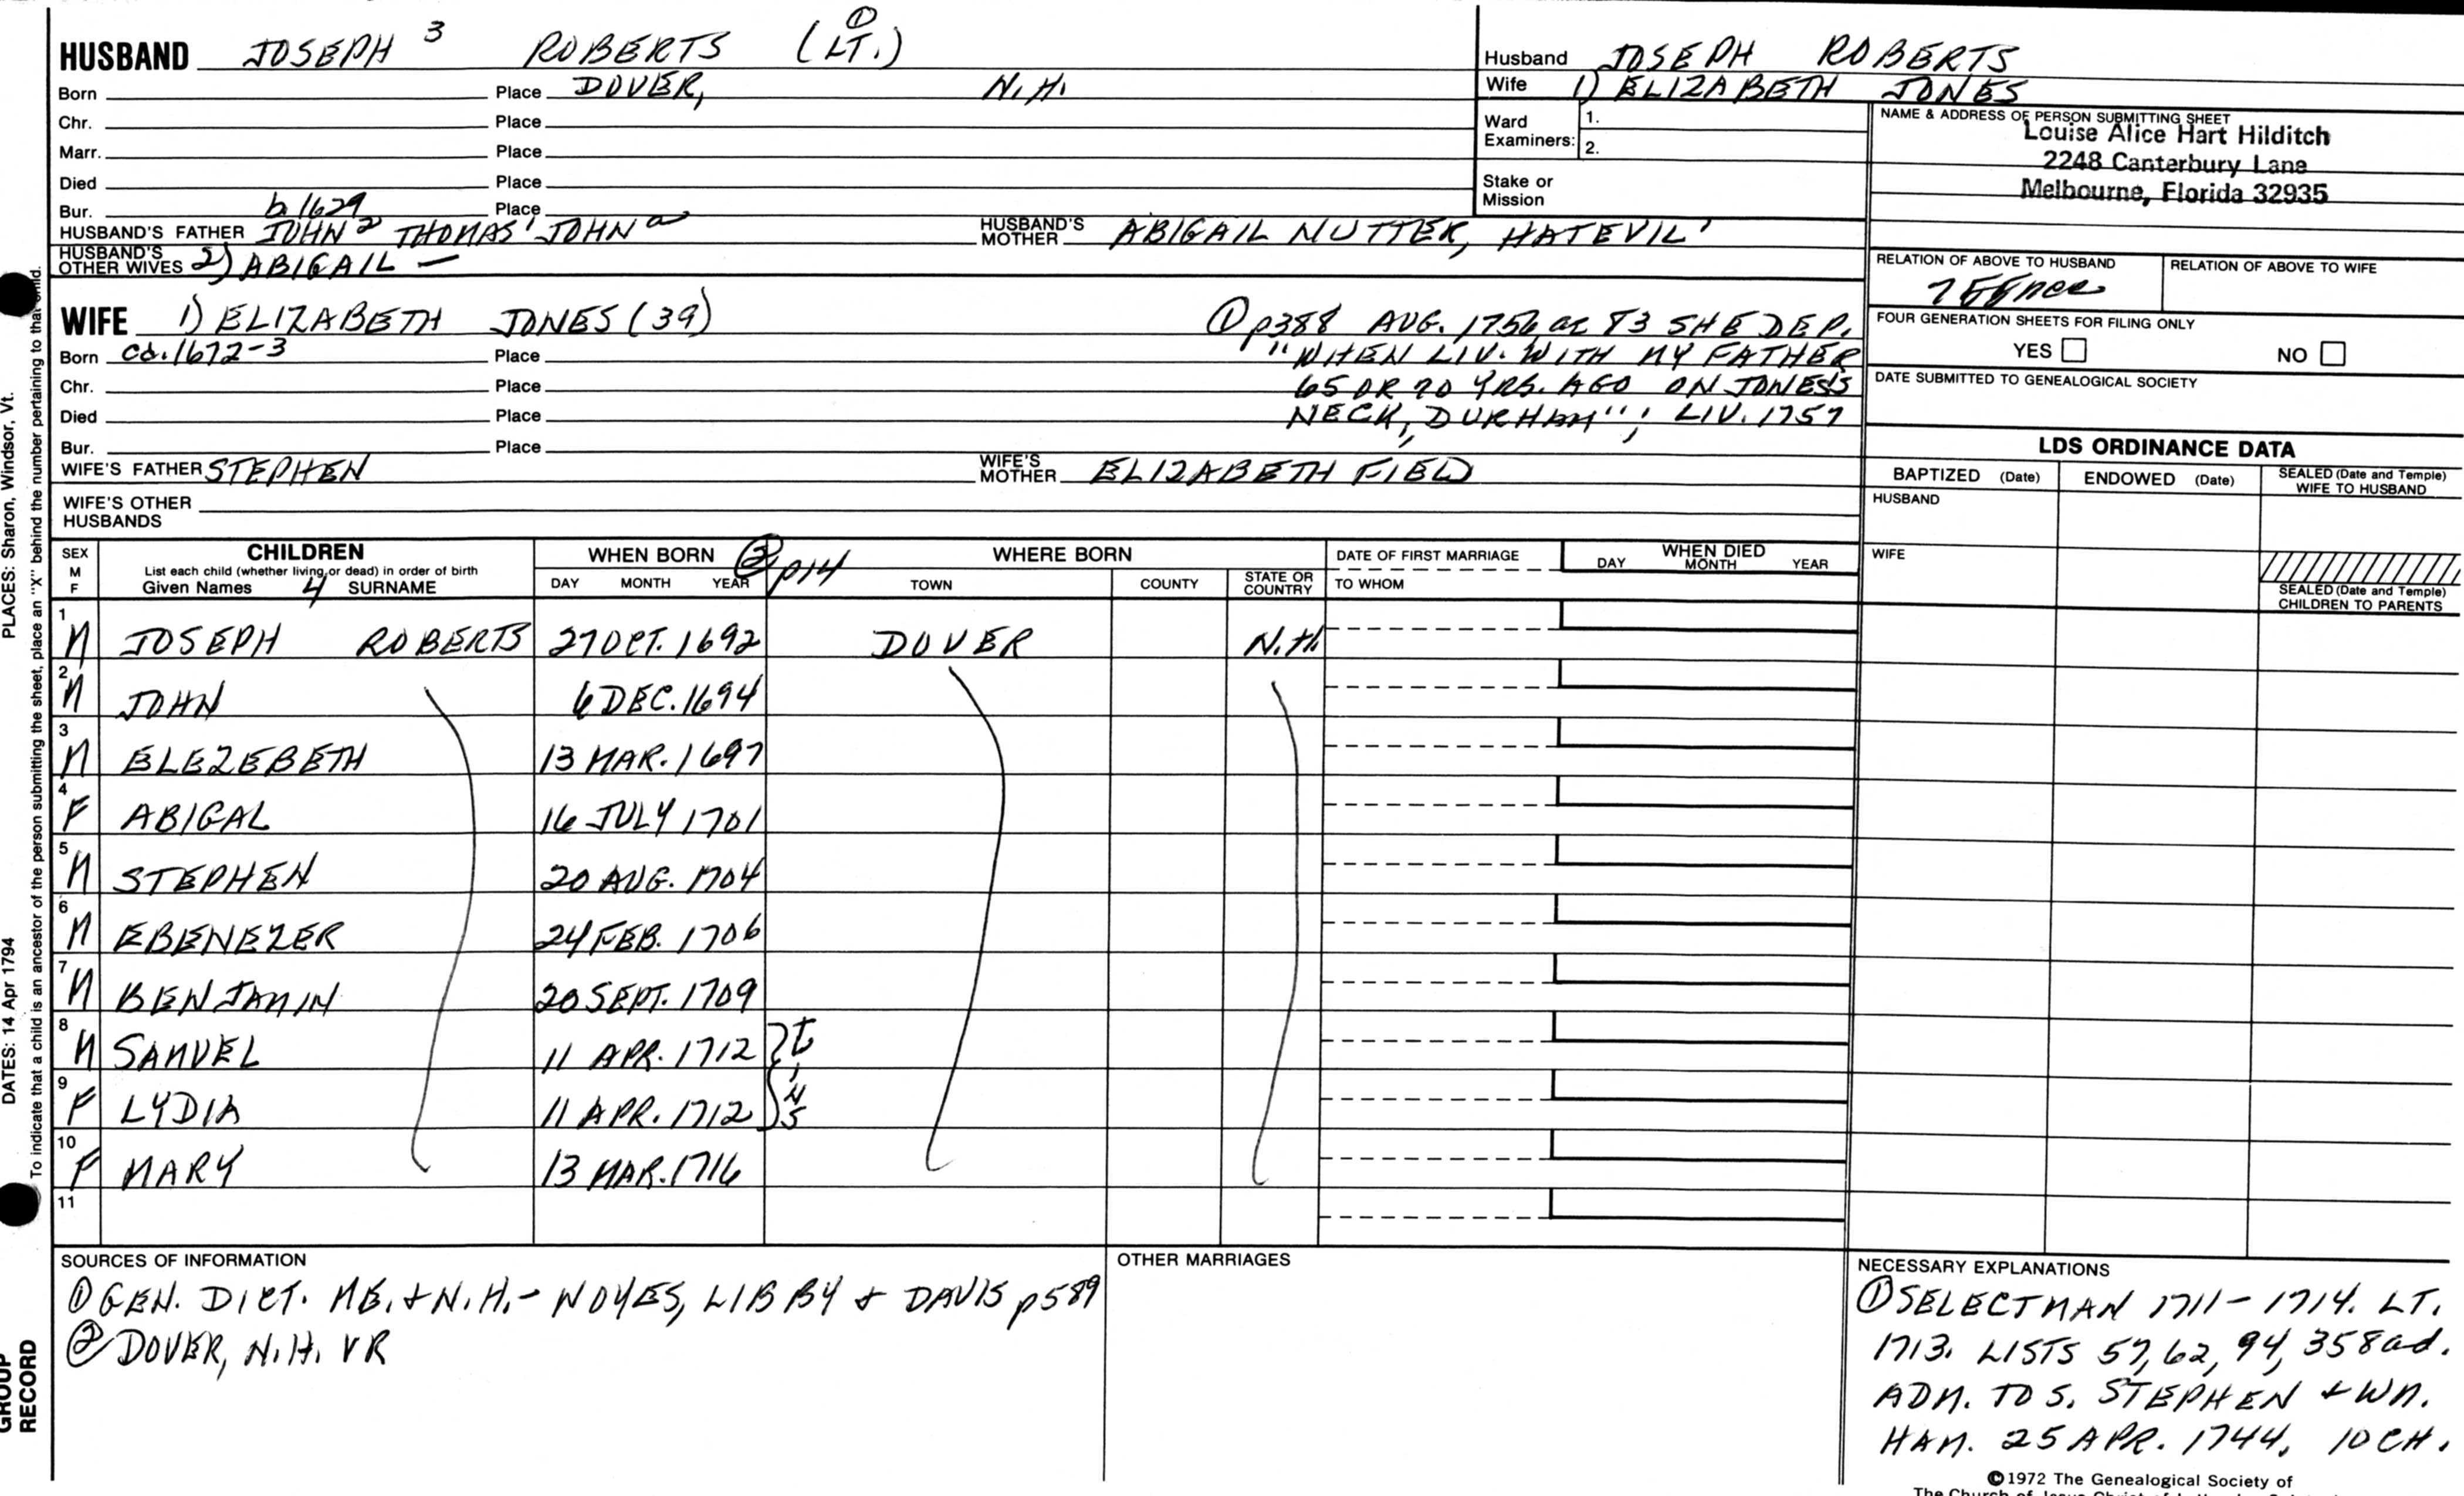 HUSBAND JOSEPH 3 ROBERTS (LT.) ①
Born Place DOVER, N.H.
Chr. Place
Marr. Place
Died Place
Bur. Place
b. 1629
HUSBAND'S FATHER JOHN 2 THOMAS 1 JOHN a
HUSBAND'S MOTHER ABIGAIL NUTTER, HATEVIL 1
HUSBAND'S OTHER WIVES 2) ABIGAIL —
Husband JOSEPH ROBERTS
Wife 1) ELIZABETH JONES
Ward Examiners: 1.
2.
Stake or Mission
NAME & ADDRESS OF PERSON SUBMITTING SHEET
Louise Alice Hart Hilditch
2248 Canterbury Lane
Melbourne, Florida 32935
RELATION OF ABOVE TO HUSBAND RELATION OF ABOVE TO WIFE
FOUR GENERATION SHEETS FOR FILING ONLY
YES NO
DATE SUBMITTED TO GENEALOGICAL SOCIETY
WIFE 1) ELIZABETH JONES (39)
Born ca. 1672-3 Place
Chr. Place
Died Place
Bur. Place
① p388 AUG. 1756 ae 83 SHE DEP.
"WHEN LIV. WITH MY FATHER
65 OR 70 YRS. AGO ON JONES'S
NECK, DURHAM"; LIV. 1757
WIFE'S FATHER STEPHEN
WIFE'S MOTHER ELIZABETH FIELD
WIFE'S OTHER HUSBANDS
LDS ORDINANCE DATA
BAPTIZED (Date) ENDOWED (Date) SEALED (Date and Temple) WIFE TO HUSBAND
HUSBAND
WIFE
SEALED (Date and Temple) CHILDREN TO PARENTS
SEX M F
CHILDREN
List each child (whether living or dead) in order of birth
Given Names 4 SURNAME
WHEN BORN ② p14
DAY MONTH YEAR
WHERE BORN
TOWN COUNTY STATE OR COUNTRY
DATE OF FIRST MARRIAGE
TO WHOM
WHEN DIED
DAY MONTH YEAR
1 M JOSEPH ROBERTS 27 OCT. 1692 DOVER N.H.
2 M JOHN 6 DEC. 1694
3 M ELEZEBETH 13 MAR. 1697
4 F ABIGAL 16 JULY 1701
5 M STEPHEN 20 AUG. 1704
6 M EBENEZER 24 FEB. 1706
7 M BENJAMIN 20 SEPT. 1709
8 M SAMUEL 11 APR. 1712
9 F LYDIA 11 APR. 1712
10 F MARY 13 MAR. 1716
11
SOURCES OF INFORMATION
① GEN. DICT. ME. + N.H. - NOYES, LIBBY + DAVIS p589
② DOVER, N.H. VR
OTHER MARRIAGES
NECESSARY EXPLANATIONS
① SELECTMAN 1711-1714. LT.
1713. LISTS 57, 62, 94, 358ad.
ADM. TO S. STEPHEN + WM.
HAM. 25 APR. 1744. 10 CH.
©1972 The Genealogical Society of
PLACES: Sharon, Windsor, Vt.
DATES: 14 Apr 1794
To indicate that a child is an ancestor of the person submitting the sheet, place an "X" behind the number pertaining to that child.
GROUP RECORD